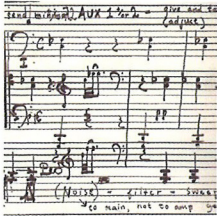 send AUX 1 or 2 - give and
(adjust)
(Noise) - filter - sweep
to main, not to amp